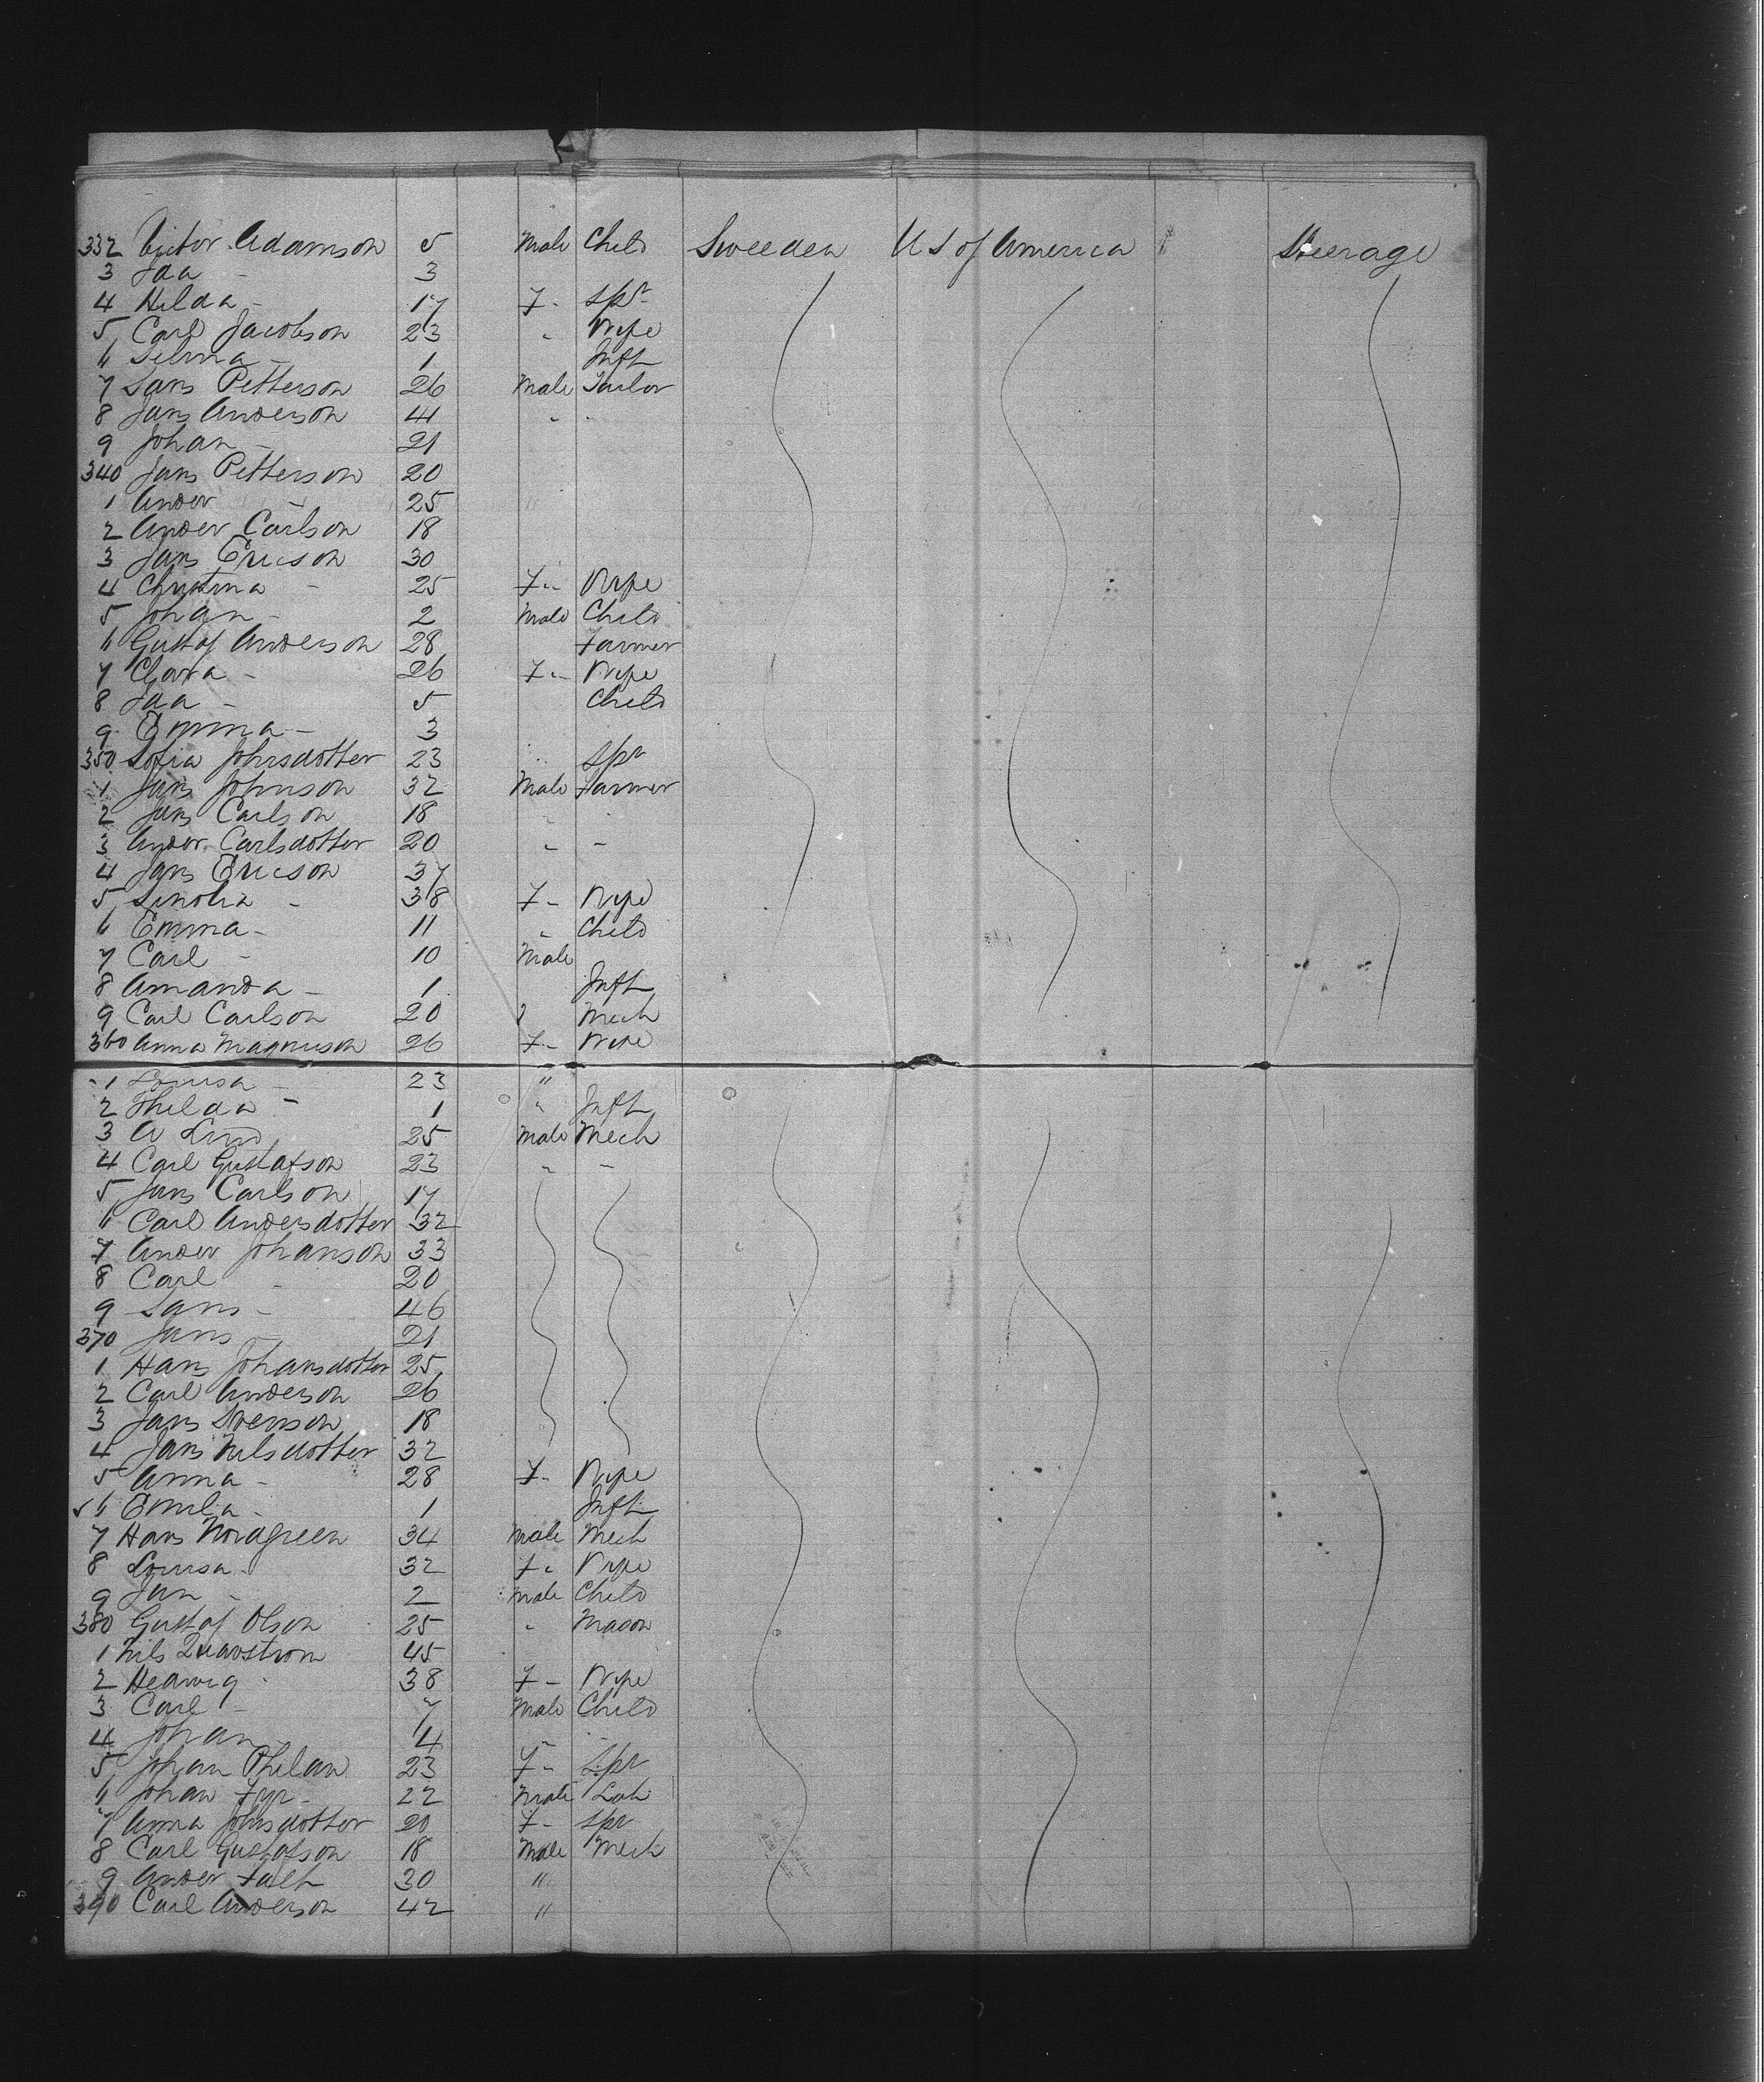 332 Victor Adamson 5 Male Child Sweeden U S of America Steerage
3 Ida - 3
4 Hilda - 17 F- spr
5 Carl Jacobson 23 " Wife
6 Selma - 1 Inft
7 Lars Petterson 26 Male Tailor
8 Jans Anderson 41 " "
9 Johan - 21
340 Jans Petterson 20
1 Ander - 25 "
2 Ander Carlson 18
3 Jans Ericson 30
4 Christina - 25 F- Wife
5 Johan - 2 Male Child
6 Gustof Anderson 28 Farmer
7 Clara - 26 F- Wife
8 Ida - 5 Child
9 Emma - 3
350 Sofia Johnsdotter 23 " spr
1 Jans Johnson 32 Male Farmer
2 Jans Carlson 18 " "
3 Ander Carlsdotter 20 " -
4 Jans Ericson 37
5 - 38 F- Wife
6 Emma - 11 " Child
7 Carl - 10 Male
8 Amanda - 1 Inft
9 Carl Carlson 20 Mech
360 Anna Magnuson 26 F- Wife
1 Louisa - 23 "
2 Thilda - 1 " Inft
3 A Lind 25 Male Mech
4 Carl Gustafson 23 " -
5 Jans Carlson 17
6 Carl Andersdotter 32
7 Ander Johanson 33
8 Carl - 20
9 Lars - 46
370 Jans - 21
1 Hans Johansdotter 25
2 Carl Anderson 26
3 Jans Svenson 18
4 Jans Nilsdotter 32
5 Anna - 28 F- Wife
6 Emila - 1 Inft
7 Hans Nordgreen 34 Male Mech
8 Louisa - 32 F- Wife
9 Jan - 2 Male Child
380 Gustof Olson 25 " Mason
1 Nils Quavstrom 45
2 Hedwig - 38 F- Wife
3 Carl - 7 Male Child
4 Johan - 4 " -
5 Johan Thelan 23 F- Spr
6 Johan Fyr - 22 Male Lab
7 Anna Johnsdotter 20 F- spr
8 Carl Gustafson 18 Male Mech
9 Ander Falk 30 "
390 Carl Anderson 42 "